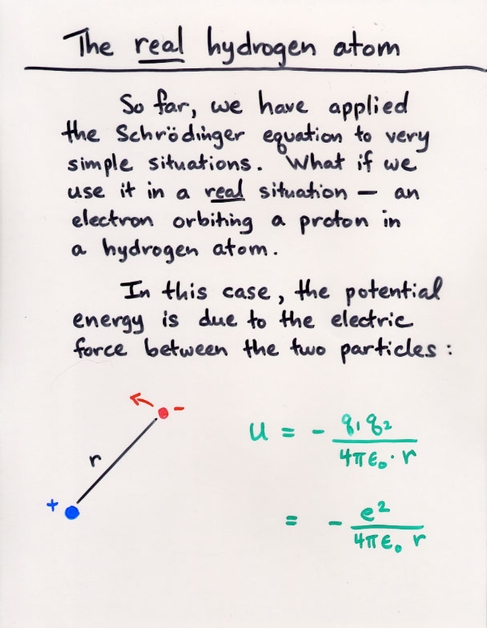 The real hydrogen atom
So far, we have applied
the Schrödinger equation to very
simple situations. What if we
use it in a real situation — an
electron orbiting a proton in
a hydrogen atom.
In this case, the potential
energy is due to the electric
force between the two particles:
r
+
-
U = - q₁q₂ / 4πε₀ · r
= - e² / 4πε₀ r